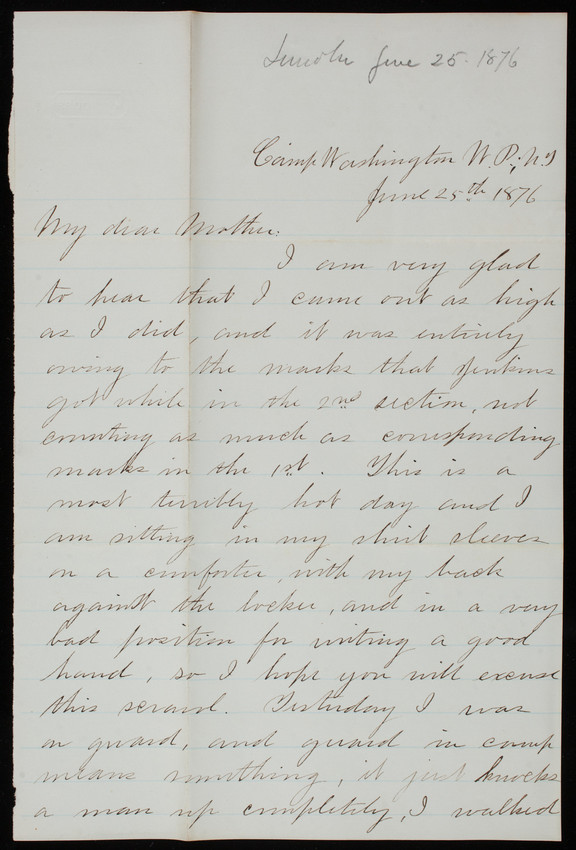 Lincoln June 25. 1876
Camp Washington W. P., N.Y
June 25th 1876
My dear Mother:
I am very glad
to hear that I came out as high
as I did, and it was entirely
owing to the marks that Jenkins
got while in the 2nd section, not
counting as much as corresponding
marks in the 1st. This is a
most terribly hot day and I
am sitting in my shirt sleeves
on a comforter, with my back
against the locker, and in a very
bad position for writing a good
hand, so I hope you will excuse
this scrawl. Yesterday I was
on guard, and guard in camp
means something, it just knocks
a man up completely, I walked